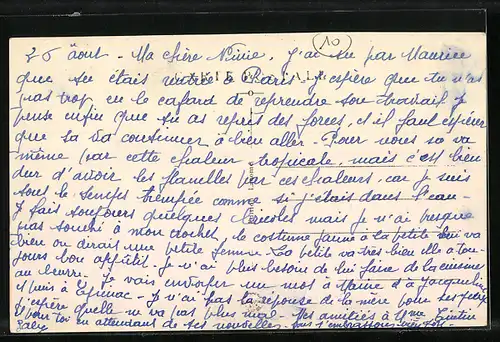 (10)
26 août - Ma chère Ninie, j'ai su par Maurice
que tu étais rentrée à Paris j'espère que tu n'as
pas trop eu le cafard de reprendre ton travail. je
pense enfin que tu as repris des forces, et il faut espérer
que sa va continuer à bien aller - Pour nous sa va
même par cette chaleur tropicale, mais c'est bien
dur d'avoir les flanelles par ces chaleurs. car je suis
tout le temps trempée comme si j'étais dans l'eau -
je fait toujours quelques bricoles mais je n'ai presque
pas touché à mon crochet, le costume jaune à la petite lui va
bien on dirait une petite femme - La petite va très bien elle a tou-
jours bon appétit - je n'ai plus besoin de lui faire de la cuisine
au beurre. Je vais envoyer un mot à et à Jacqueline
et puis à - je n'ai pas la réponse de la mère pour ses
j'espère quelle ne va pas plus mal - Mes amitiés à Mme
et pour toi en attendant de tes nouvelles nous t'embrassons bien fort -